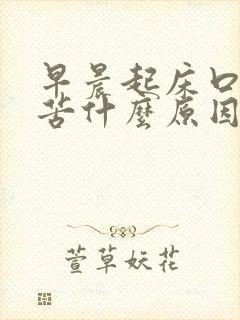 早晨起床口
苦什麼原因
萱草妖花